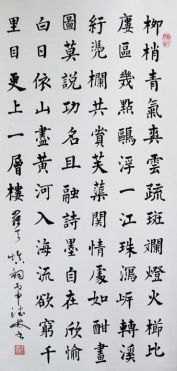 柳梢青氣爽雲疏斑斕燈火櫛比
廔區幾點鷗浮一江珠瀉轉溪
紆凴欄共賞芙蕖關情處如酣畫
圖莫說功名且融詩墨自在欣愉
白日依山盡黃河入海流欲窮千
里目更上一層樓
丙申